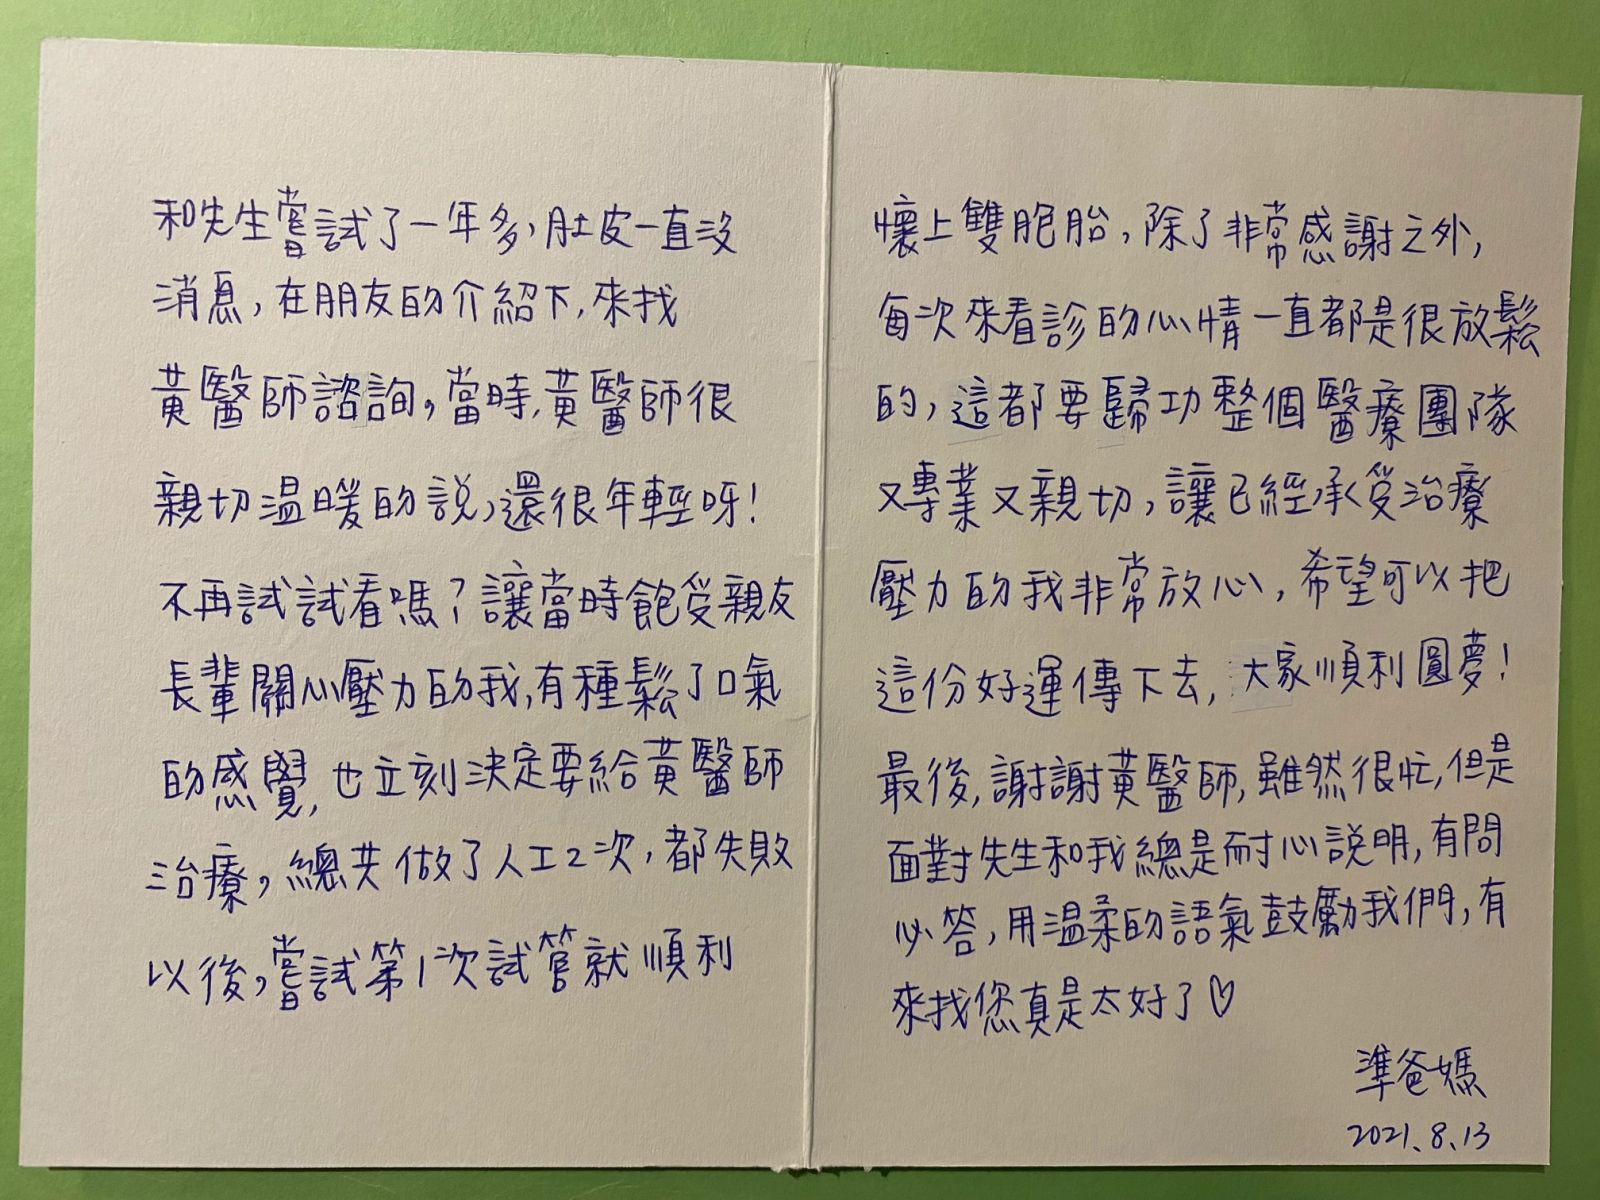 和先生嘗試了一年多,肚皮一直沒
消息,在朋友的介紹下,來找
黃醫師諮詢,當時,黃醫師很
親切溫暖的說,還很年輕呀!
不再試試看嗎?讓當時飽受親友
長輩關心壓力的我,有種鬆了口氣
的感覺,也立刻決定要給黃醫師
治療,總共做了人工2次,都失敗
以後,嘗試第1次試管就順利
懷上雙胞胎,除了非常感謝之外,
每次來看診的心情一直都是很放鬆
的,這都要歸功整個醫療團隊
又專業又親切,讓已經承受治療
壓力的我非常放心,希望可以把
這份好運傳下去,大家順利圓夢!
最後,謝謝黃醫師,雖然很忙,但是
面對先生和我總是耐心說明,有問
必答,用溫柔的語氣鼓勵我們,有
來找您真是太好了♡
準爸媽
2021.8.13